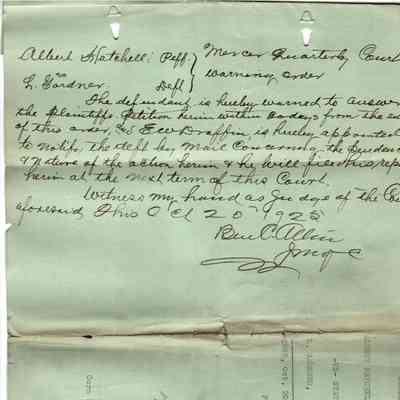 Albert Hatchell Peff. } Mercer Quarterly Court
vs } Warning order
L. Gardner. Deft
The defendant is hereby warned to answer
the plaintiffs Petition herein within 30 days from the
of this order, and E.W. Draffin, is hereby appointed
to notify the deft by mail concerning the
& Nature of the action herein & he will file his rep
herein at the next term of this Court.
Witness my hand as Judge of the
aforesaid, this Oct 20 1925
Ben C. Allin
Judge